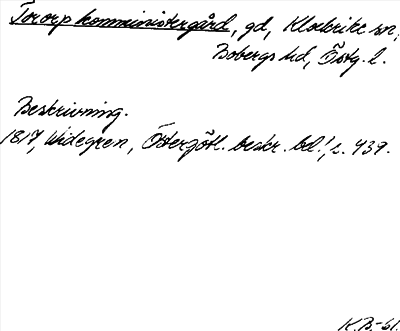 Tororp kommunistergård, gd, Klockrike sn,
Bobergs hd, Östg. l.
Beskrivning.
1817, Widegren, Östergötl. beskr. bd 1, s. 439.
K.B.-61.